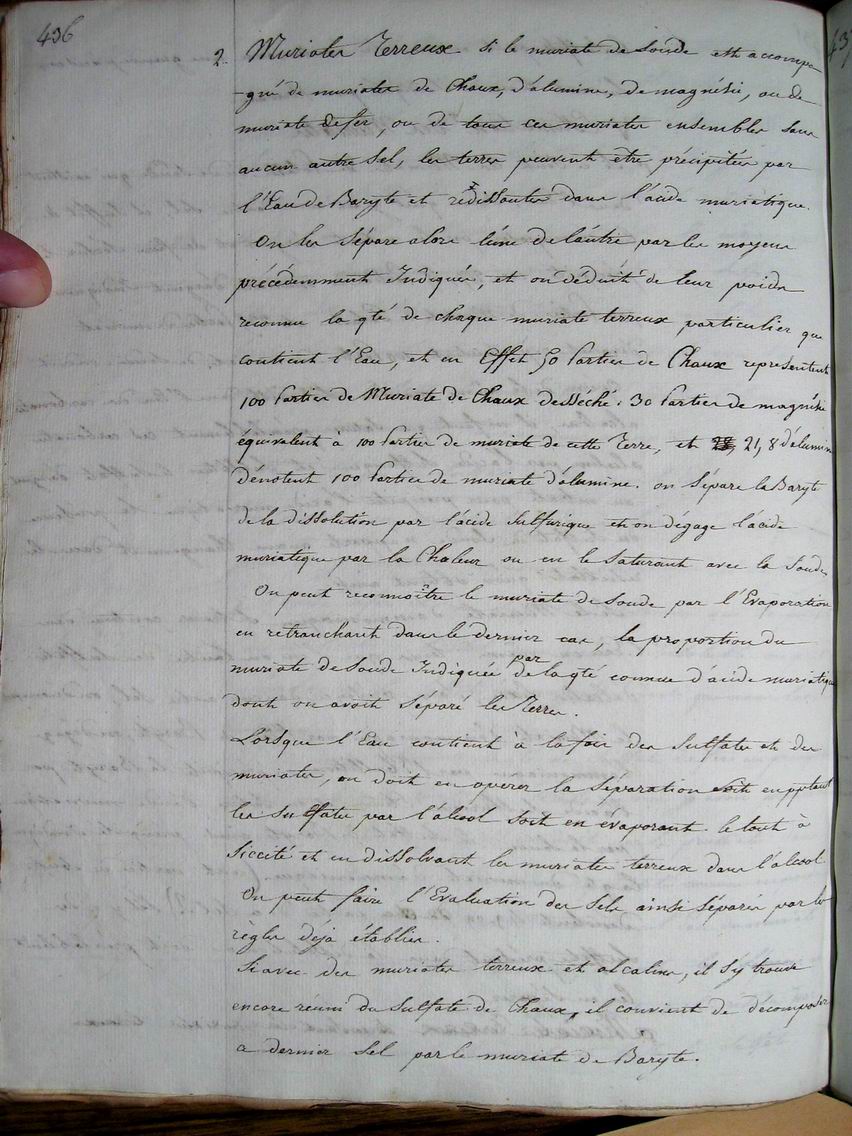 436
2. Muriates Terreux si le muriate de Soude est accompa-
-gné de muriates de Chaux, d'alumine, de magnésie, ou de
muriate de fer, ou de tous ces muriates ensembles sans
aucun autre Sel, les terres peuvent etre précipitées par
l'Eau de Baryte et redissoutes dans l'acide muriatique.
On les Sépare alors l'une de l'autre par les moyens
précédemment Indiqués, et on déduit de leur poids
reconnu la qté de chaque muriate terreux particulier que
contient l'Eau, et en Effet 50 Parties de Chaux representent
100 Parties de Muriate de Chaux desséché. 30 Parties de magnésie
équivalent à 100 Parties de muriate de cette Terre, et 21,8 d'alumine
dénotent 100 Parties de muriate d'alumine. on Sépare la Baryte
de la dissolution par l'acide Sulfurique et on dégage l'acide
muriatique par la Chaleur ou en le Saturant avec la Soude
On peut reconnoître le muriate de Soude par l'Evaporation
en retranchant dans le dernier cas, la proportion du
muriate de Soude Indiquée par la qté connue d'acide muriatique
dont on avoit Séparé les Terres.
Lorsque l'Eau contient à la fois des Sulfates et des
muriates, on doit en operer la Séparation soit en pptant
les Sulfates par l'alcool soit en évaporant le tout à
Siccité et en dissolvant les muriates terreux dans l'alcool
On peut faire l'Evaluation des Sels ainsi Séparés par les
règles déjà établies.
Si avec des muriates terreux et alcalins, il s'y trouve
encore réuni du Sulfate de Chaux, il convient de décomposer
ce dernier Sel par le muriate de Baryte.
437